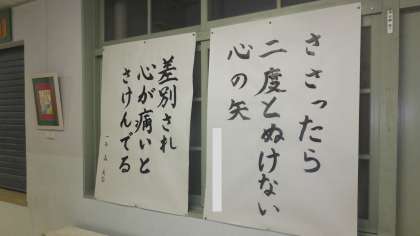 ささったら
二度とぬけない
心の矢
差別され
心が痛いと
さけんでる